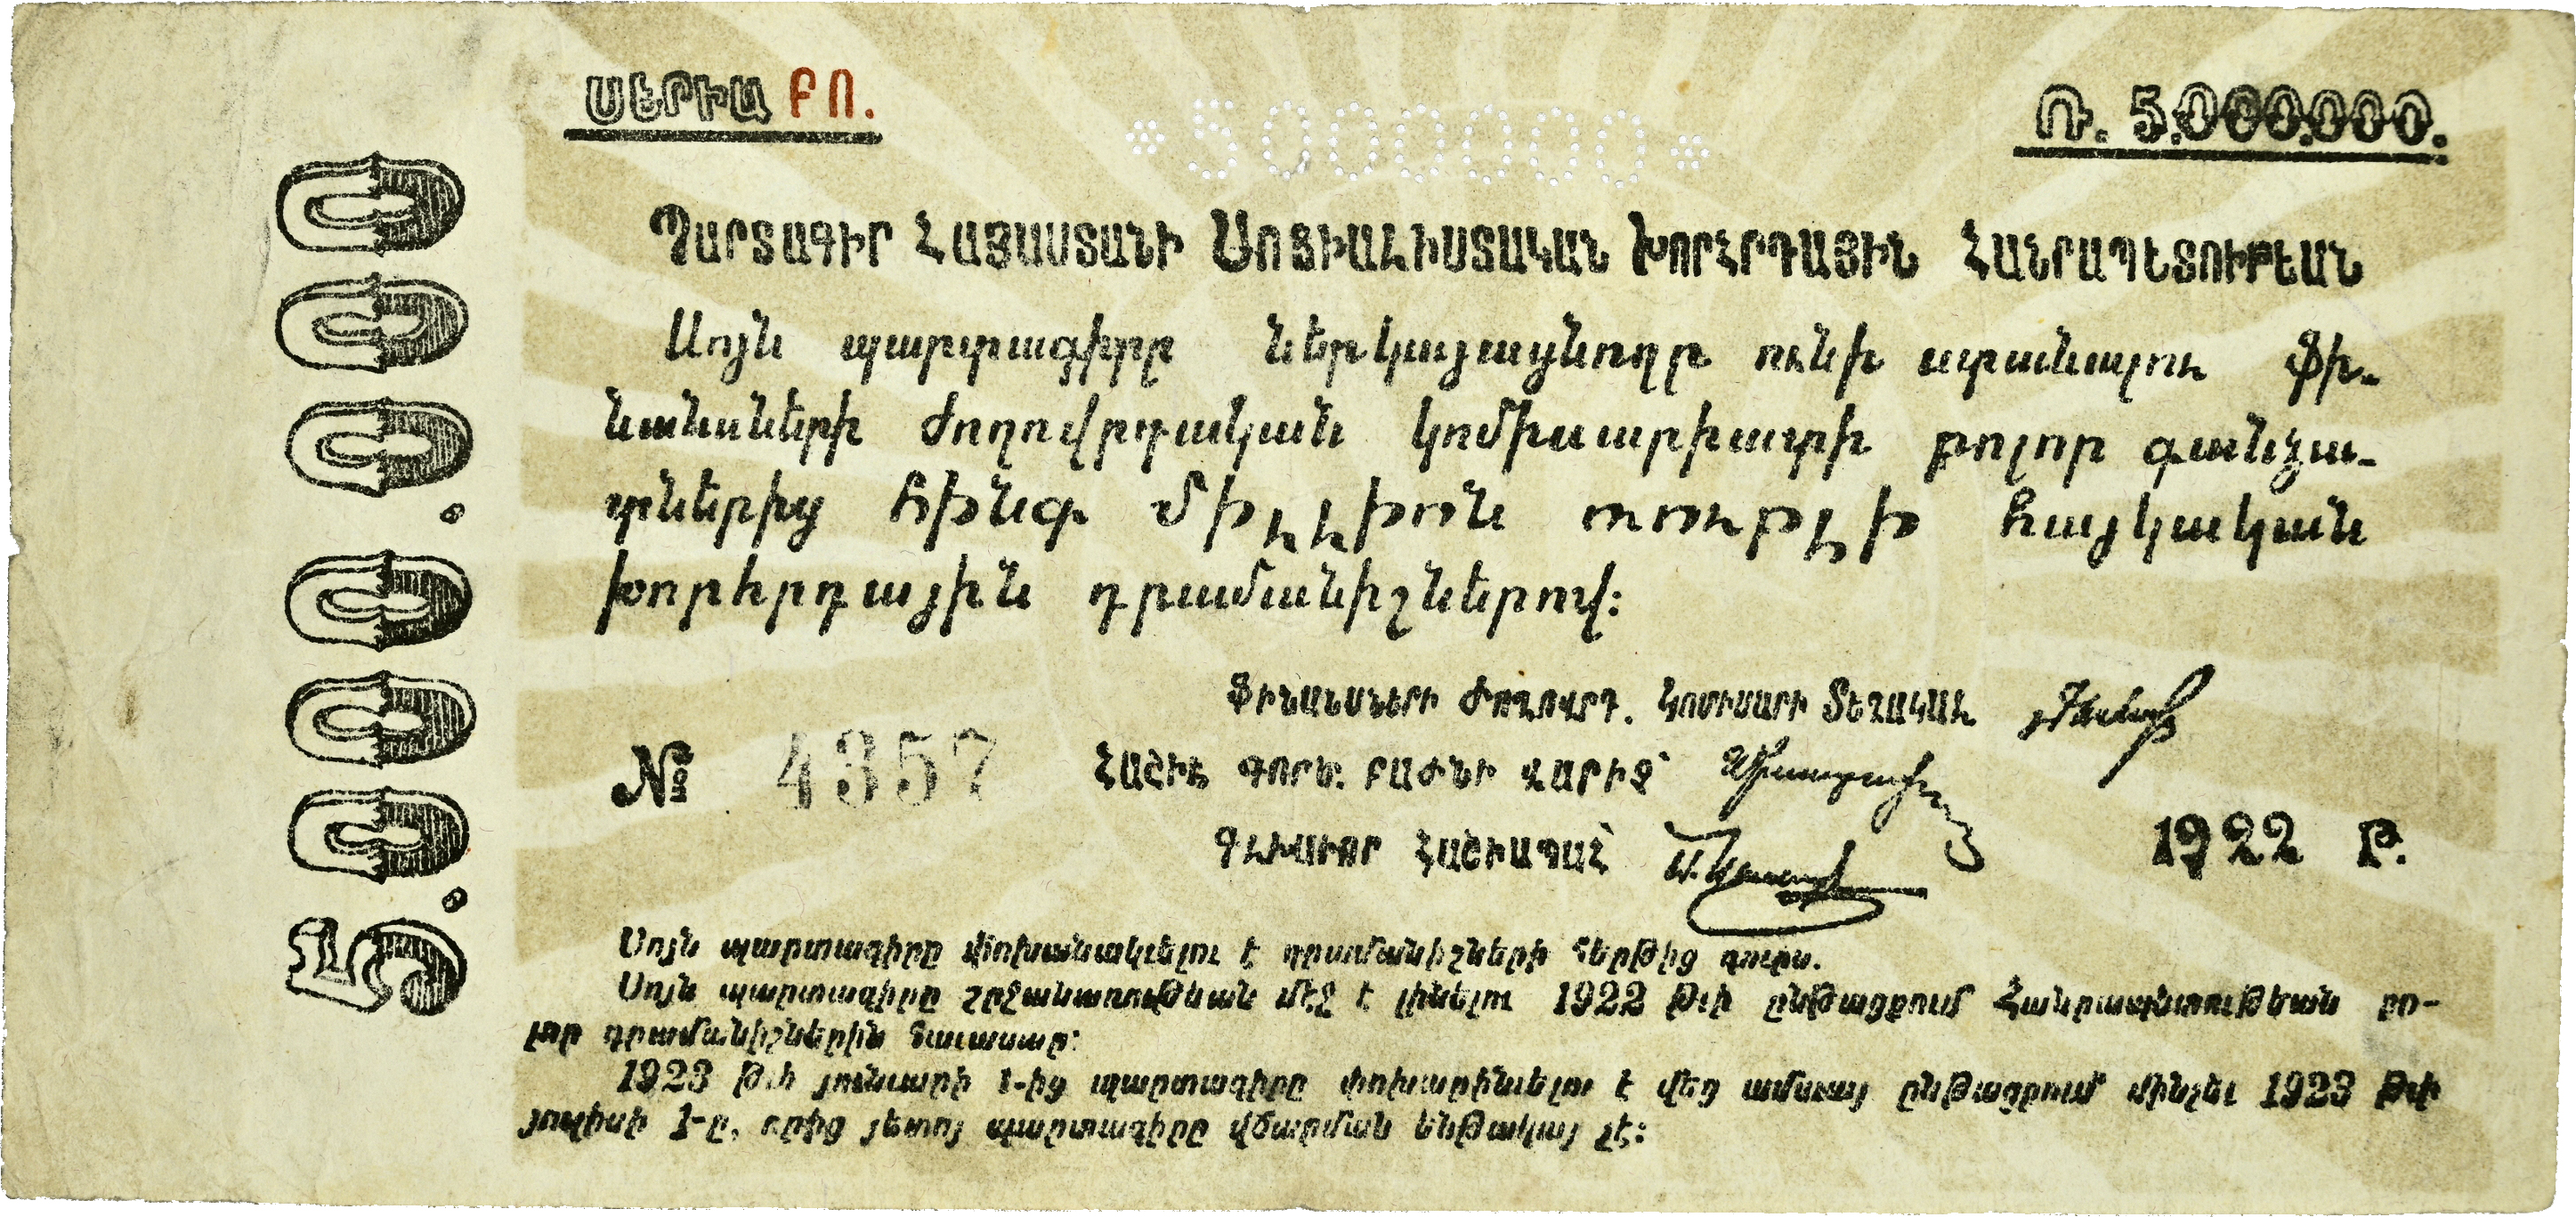 ՍԵՐԻԱ ԲՈ.
Ռ. 5.000.000.
*5000000*
5.000.000
ՊԱՐՏԱԳԻՐ ՀԱՅԱՍՏԱՆԻ ՍՈՑԻԱԼԻՍՏԱԿԱՆ ԽՈՐՀՐԴԱՅԻՆ ՀԱՆՐԱՊԵՏՈՒԹԵԱՆ
Սոյն պարտագիրը ներկայացնողը ունի ստանալու Ֆի-
նանսների Ժողովրդական կոմիսարիատի բոլոր գանձա-
տներից հինգ միլլիոն ռուբլի հայկական
խորհրդային դրամանիշներով:
ՖԻՆԱՆՍՆԵՐԻ ԺՈՂՈՎՐԴ. ԿՈՄԻՍԱՐԻ ՏԵՂԱԿԱԼ
№ 4357
ՀԱՇԻՒ ԳՈՐԾ. ԲԱԺՆԻ ՎԱՐԻՉ՝
ԳԼԽԱՒՈՐ ՀԱՇԻԱՊԱՀ՝
1922 Թ.
Սոյն պարտագիրը փոխանակւելու է դրամանիշների հերթից դուրս.
Սոյն պարտագիրը շրջանառութեան մէջ է լինելու 1922 թւի ընթացքում Հանրապետութեան բո-
լոր դրամանիշներին հաւասար:
1923 թւի յունւարի 1-ից պարտագիրը փոխարինւելու է վեց ամսւայ ընթացքում մինչեւ 1923 թւի
յուլիսի 1-ը, որից յետոյ պարտագիրը վճարման ենթակայ չէ: